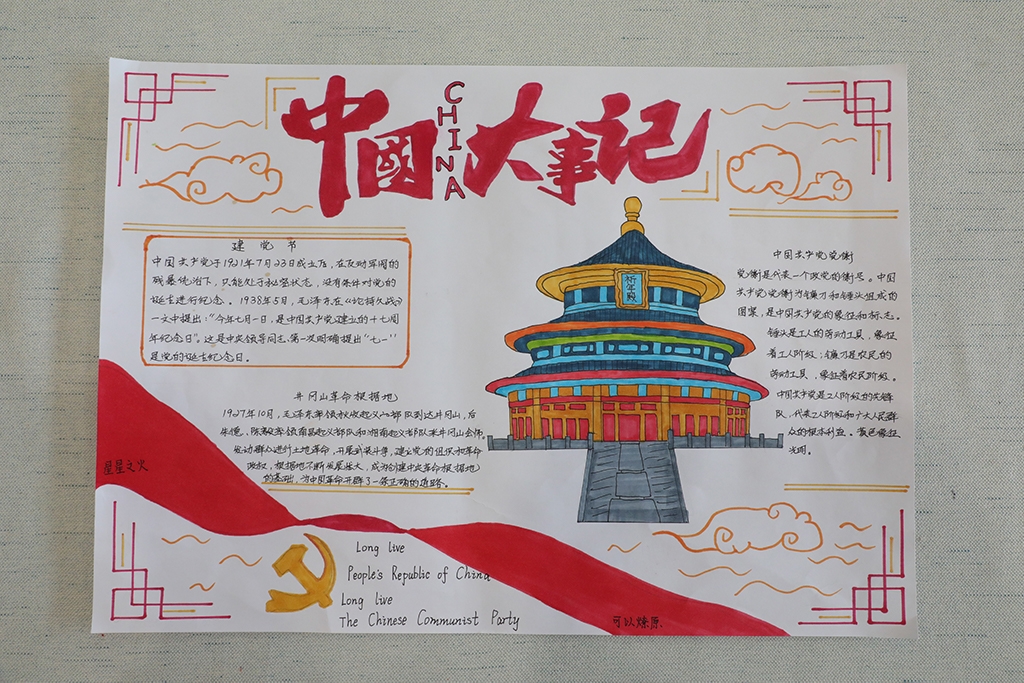 中國
CHINA
大事记
建党节
中国共产党于1921年7月23日成立后,在反动军阀的
残暴统治下,只能处于秘密状态,没有条件对党的
诞生进行纪念。1938年5月,毛泽东在《论持久战》
一文中提出:"今年七月一日,是中国共产党建立的十七周
年纪念日"。这是中央领导同志第一次明确提出"七一"
是党的诞生纪念日。
井冈山革命根据地
1927年10月,毛泽东率领秋收起义部队到达井冈山,后
朱德、陈毅率领南昌起义部队和湘南起义部队来井冈山会师。
发动群众进行土地革命,开展武装斗争,建立党的组织和革命
政权,根据地不断发展壮大,成为创建中央革命根据地
的基础,为中国革命开辟了一条正确的道路。
祈年殿
中国共产党党徽
党徽是代表一个政党的徽号。中国
共产党党徽为镰刀和锤头组成的
图案,是中国共产党的象征和标志。
锤头是工人的劳动工具,象征
着工人阶级;镰刀是农民的
劳动工具,象征着农民阶级。
中国共产党是工人阶级的先锋
队,代表工人阶级和广大人民群
众的根本利益。黄色象征
光明。
星星之火
Long live
People's Republic of China
Long live
The Chinese Communist Party
可以燎原.